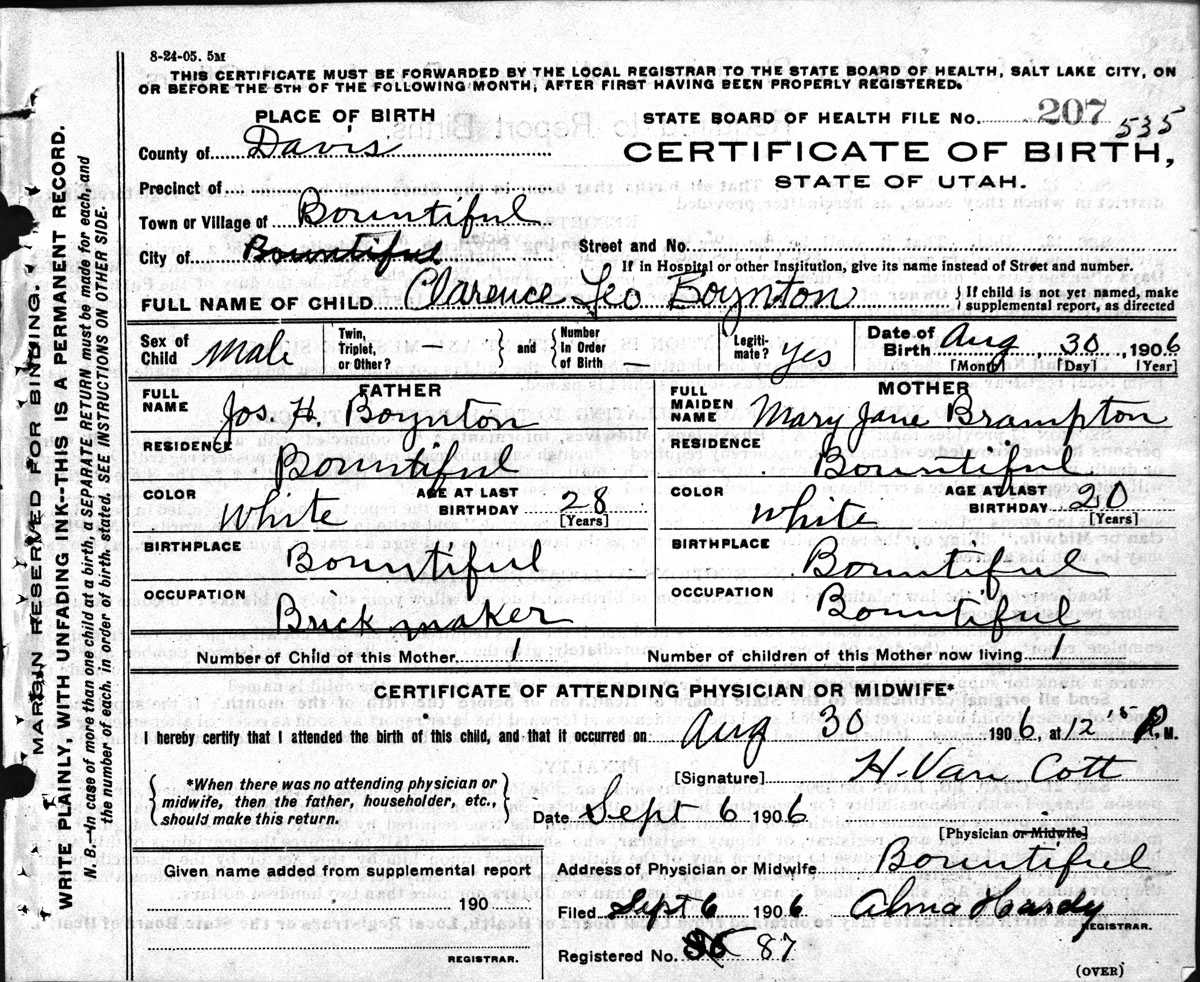 8-24-05. 5M
THIS CERTIFICATE MUST BE FORWARDED BY THE LOCAL REGISTRAR TO THE STATE BOARD OF HEALTH, SALT LAKE CITY, ON
OR BEFORE THE 5TH OF THE FOLLOWING MONTH, AFTER FIRST HAVING BEEN PROPERLY REGISTERED.
PLACE OF BIRTH
STATE BOARD OF HEALTH FILE No. 207 535
County of Davis
CERTIFICATE OF BIRTH,
STATE OF UTAH.
Precinct of
Town or Village of Bountiful
City of Bountiful
Street and No.
If in Hospital or other Institution, give its name instead of Street and number.
FULL NAME OF CHILD Clarence Leo Boynton
If child is not yet named, make
supplemental report, as directed
Sex of Child Male
Twin, Triplet, or Other?
and Number in Order of Birth —
Legitimate? Yes
Date of Birth Aug 30, 1906
[Month] [Day] [Year]
FATHER
FULL NAME Jos. H. Boynton
RESIDENCE Bountiful
COLOR White
AGE AT LAST BIRTHDAY 28
[Years]
BIRTHPLACE Bountiful
OCCUPATION Brick maker
MOTHER
FULL MAIDEN NAME Mary Jane Brampton
RESIDENCE Bountiful
COLOR White
AGE AT LAST BIRTHDAY 20
[Years]
BIRTHPLACE Bountiful
OCCUPATION Bountiful
Number of Child of this Mother 1
Number of children of this Mother now living 1
CERTIFICATE OF ATTENDING PHYSICIAN OR MIDWIFE*
I hereby certify that I attended the birth of this child, and that it occurred on Aug 30 1906, at 12 15 P. M.
*When there was no attending physician or
midwife, then the father, householder, etc.,
should make this return.
[Signature] H. Van Cott
Date Sept 6 1906
[Physician or Midwife]
Given name added from supplemental report
190
REGISTRAR.
Address of Physician or Midwife Bountiful
Filed Sept 6 1906 Alma Hardy
REGISTRAR.
Registered No. 87
(OVER)
MARGIN RESERVED FOR BINDING.
WRITE PLAINLY, WITH UNFADING INK--THIS IS A PERMANENT RECORD.
N. B.—In case of more than one child at a birth, a SEPARATE RETURN must be made for each, and
the number of each, in order of birth, stated. SEE INSTRUCTIONS ON OTHER SIDE.